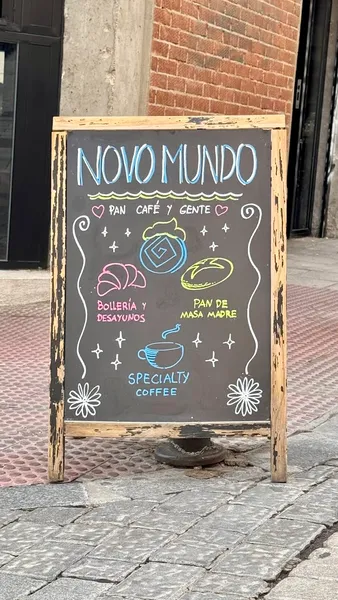 NOVO MUNDO
PAN CAFÉ Y GENTE
BOLLERÍA Y
DESAYUNOS
PAN DE
MASA MADRE
SPECIALTY
COFFEE